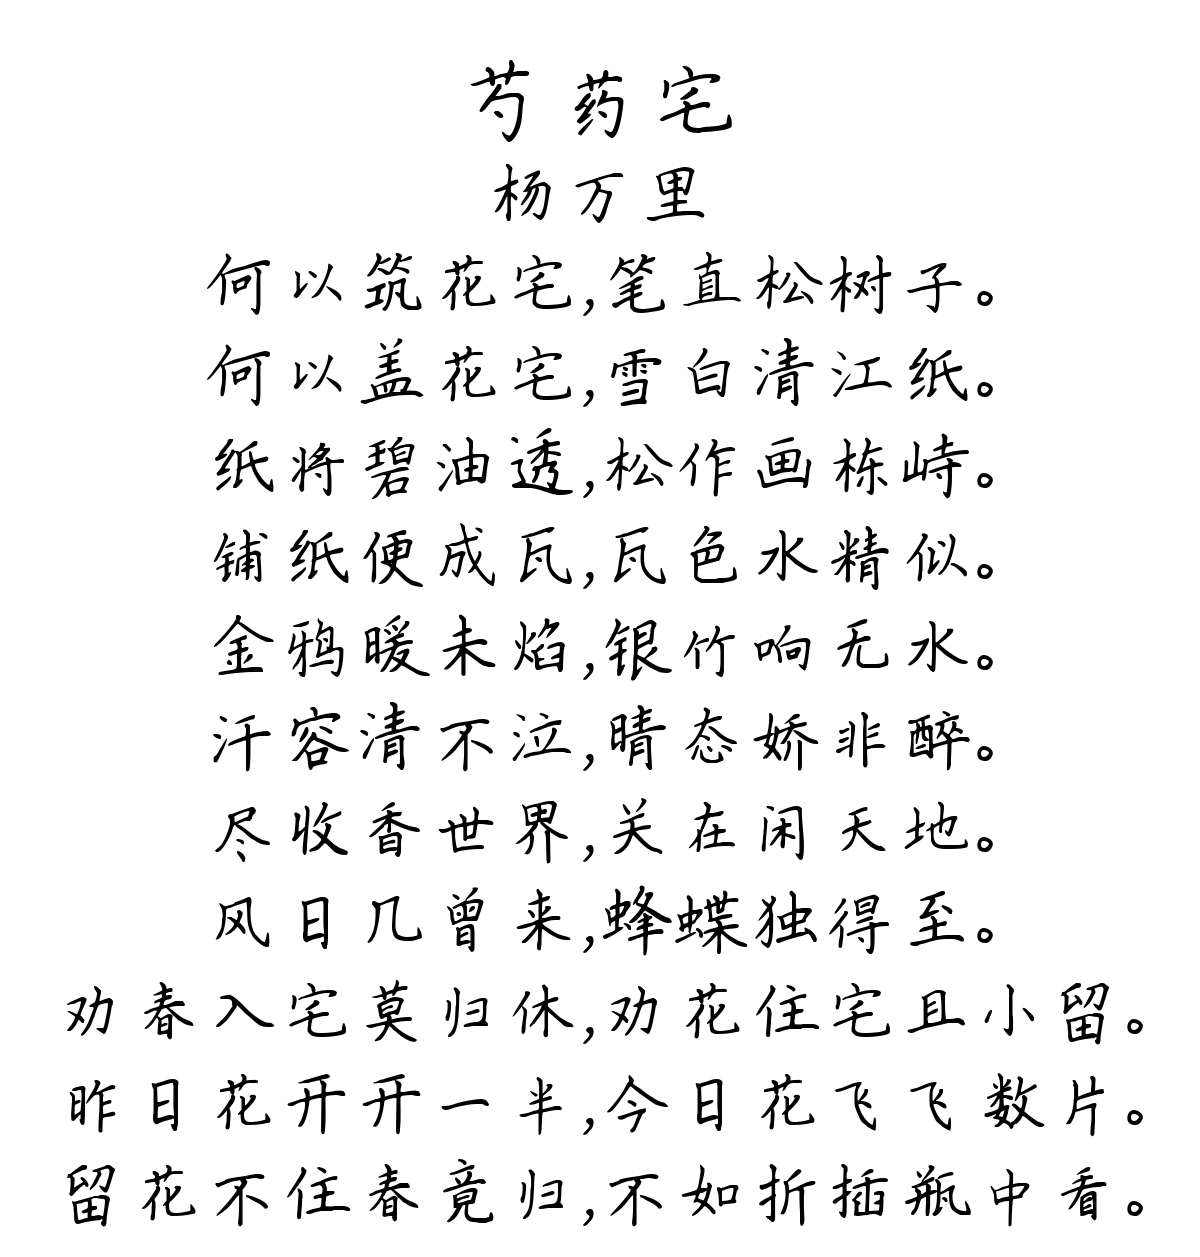 芍药宅
杨万里
何以筑花宅,笔直松树子。
何以盖花宅,雪白清江纸。
纸将碧油透,松作画栋峙。
铺纸便成瓦,瓦色水精似。
金鸦暖未焰,银竹响无水。
汗容清不泣,晴态娇非醉。
尽收香世界,关在闲天地。
风日几曾来,蜂蝶独得至。
劝春入宅莫归休,劝花住宅且小留。
昨日花开开一半,今日花飞飞数片。
留花不住春竟归,不如折插瓶中看。